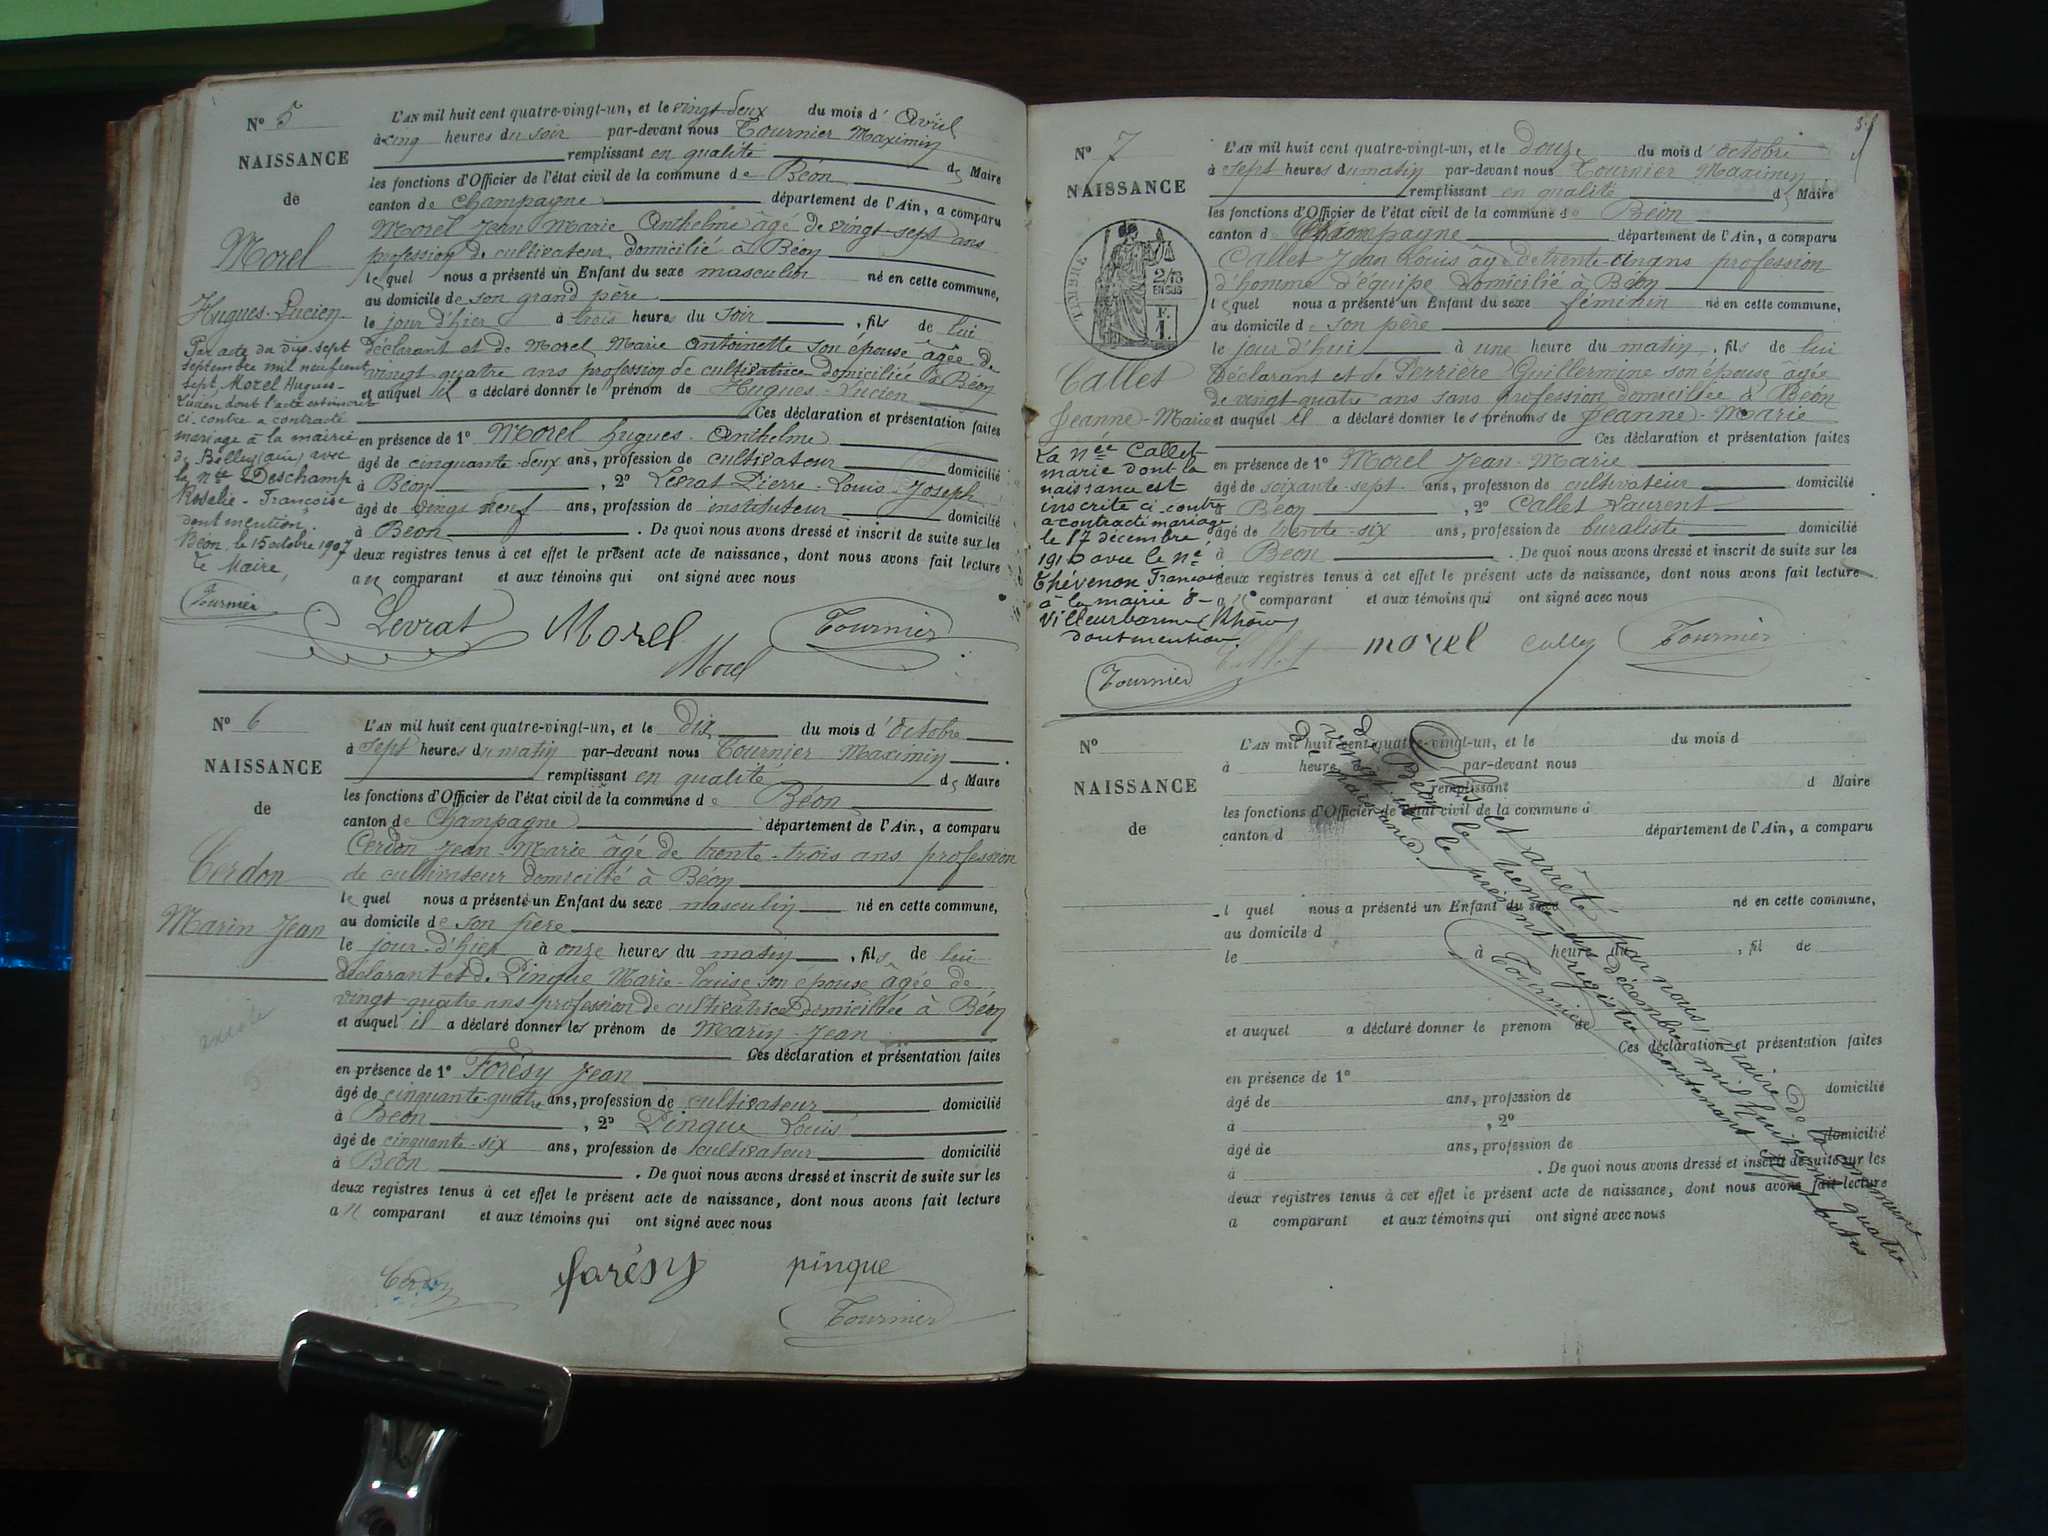 N° 5
NAISSANCE
de
Morel
Hugues-Lucien
Par acte du dix-sept
septembre mil neuf cent
sept, Morel Hugues-
Lucien dont l'acte est inscrit
ci-contre a contracté
mariage à la mairie
de Belley (ain) avec
la née Deschamp
Rosalie-Françoise
dont mention.
Béon, le 15 octobre 1907
Le Maire,
Tournier
L'AN mil huit cent quatre-vingt-un, et le vingt-deux du mois d'Avril
à cinq heures du soir par-devant nous Tournier Maximin
remplissant en qualité de Maire
les fonctions d'Officier de l'état civil de la commune de Béon
canton de Champagne département de l'Ain, a comparu
Morel Jean Marie Anthelme âgé de vingt-sept ans
profession de cultivateur domicilié à Béon
lequel nous a présenté un Enfant du sexe masculin né en cette commune,
au domicile de son grand père
le jour d'hier à trois heures du soir, fils de lui
déclarant et de Morel Marie Antoinette son épouse âgée de
vingt quatre ans profession de cultivatrice domiciliée à Béon
et auquel il a déclaré donner le prénom de Hugues-Lucien
Ces déclaration et présentation faites
en présence de 1° Morel Hugues-Anthelme
âgé de cinquante-deux ans, profession de cultivateur domicilié
à Béon, 2° Levrat Pierre-Louis-Joseph
âgé de vingt neuf ans, profession de instituteur domicilié
à Béon. De quoi nous avons dressé et inscrit de suite sur les
deux registres tenus à cet effet le présent acte de naissance, dont nous avons fait lecture
au comparant et aux témoins qui ont signé avec nous
Levrat Morel Tournier
Morel
N° 6
NAISSANCE
de
Cerdon
Marin Jean
L'AN mil huit cent quatre-vingt-un, et le dix du mois d'Octobre
à sept heures du matin par-devant nous Tournier Maximin
remplissant en qualité de Maire
les fonctions d'Officier de l'état civil de la commune de Béon
canton de Champagne département de l'Ain, a comparu
Cerdon Jean-Marie âgé de trente-trois ans profession
de cultivateur domicilié à Béon
lequel nous a présenté un Enfant du sexe masculin né en cette commune,
au domicile de son père
le jour-d'hier à onze heures du matin, fils de lui
déclarant et de Pinque Marie-Louise son épouse âgée de
vingt-quatre ans profession de cultivatrice domiciliée à Béon
et auquel il a déclaré donner les prénom de Marin-Jean
Ces déclaration et présentation faites
en présence de 1° Forésy Jean
âgé de cinquante-quatre ans, profession de cultivateur domicilié
à Béon, 2° Pinque Louis
âgé de cinquante-six ans, profession de cultivateur domicilié
à Béon. De quoi nous avons dressé et inscrit de suite sur les
deux registres tenus à cet effet le présent acte de naissance, dont nous avons fait lecture
au comparant et aux témoins qui ont signé avec nous
Cerdon forésy pinque
Tournier
N° 7
NAISSANCE
TIMBRE
2/10
EN SUS
F.
1.
Callet
Jeanne-Marie
La née Callet
marie dont la
naissance est
inscrite ci-contre
a contracté mariage
le 17 décembre
1910 avec le né
Thévenon François
à la mairie de
Villeurbanne (Rhône)
dont mention.
Tournier
L'AN mil huit cent quatre-vingt-un, et le douze du mois d'octobre
à sept heures du matin par-devant nous Tournier Maximin
remplissant en qualité de Maire
les fonctions d'Officier de l'état civil de la commune de Béon
canton de Champagne département de l'Ain, a comparu
Callet Jean Louis âgé de trente-cinq ans profession
d'homme d'équipe domicilié à Béon
lequel nous a présenté un Enfant du sexe féminin né en cette commune,
au domicile de son père
le jour d'hui à une heure du matin, fils de lui
déclarant et de Perrière Guillermine son épouse agée
de vingt-quatre ans sans profession domiciliée à Béon
et auquel il a déclaré donner les prénoms de Jeanne-Marie
Ces déclaration et présentation faites
en présence de 1° Morel Jean-Marie
âgé de soixante-sept ans, profession de cultivateur domicilié
à Béon, 2° Callet Laurent
âgé de trente-six ans, profession de buraliste domicilié
à Béon. De quoi nous avons dressé et inscrit de suite sur les
deux registres tenus à cet effet le présent acte de naissance, dont nous avons fait lecture
au comparant et aux témoins qui ont signé avec nous
Callet morel Callet Tournier
N°
NAISSANCE
de
L'AN mil huit cent quatre-vingt-un, et le du mois d
à heure par-devant nous
remplissant d Maire
les fonctions d'Officier de l'état civil de la commune d
canton d département de l'Ain, a comparu
l quel nous a présenté un Enfant du sexe né en cette commune,
au domicile d
le à heure du , fil de
et auquel a déclaré donner le prénom de
Ces déclaration et présentation faites
en présence de 1°
âgé de ans, profession de domicilié
à , 2°
âgé de ans, profession de domicilié
à . De quoi nous avons dressé et inscrit de suite sur les
deux registres tenus à cet effet le présent acte de naissance, dont nous avons fait lecture
a comparant et aux témoins qui ont signé avec nous
Clos et arrêté par nous, Maire de la commune
de Béon le trente-un décembre mil huit cent quatre
vingt-un le présent registre contenant sept actes
de naissance.
Tournier